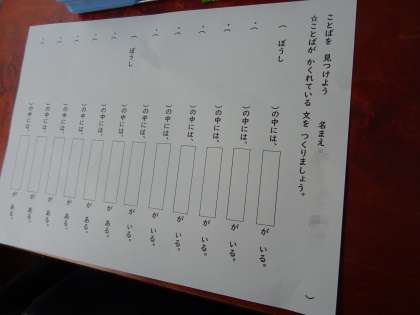 ことばを 見つけよう 名まえ( )
☆ことばが かくれている 文を つくりましょう。
( ぼうし )の中には、 が いる。
・( )の中には、 が いる。
・( )の中には、 が いる。
・( )の中には、 が いる。
・( )の中には、 が いる。
・( )の中には、 が いる。
( ぼうし )の中には、 が ある。
・( )の中には、 が ある。
・( )の中には、 が ある。
・( )の中には、 が ある。
・( )の中には、 が ある。
・( )の中には、 が ある。